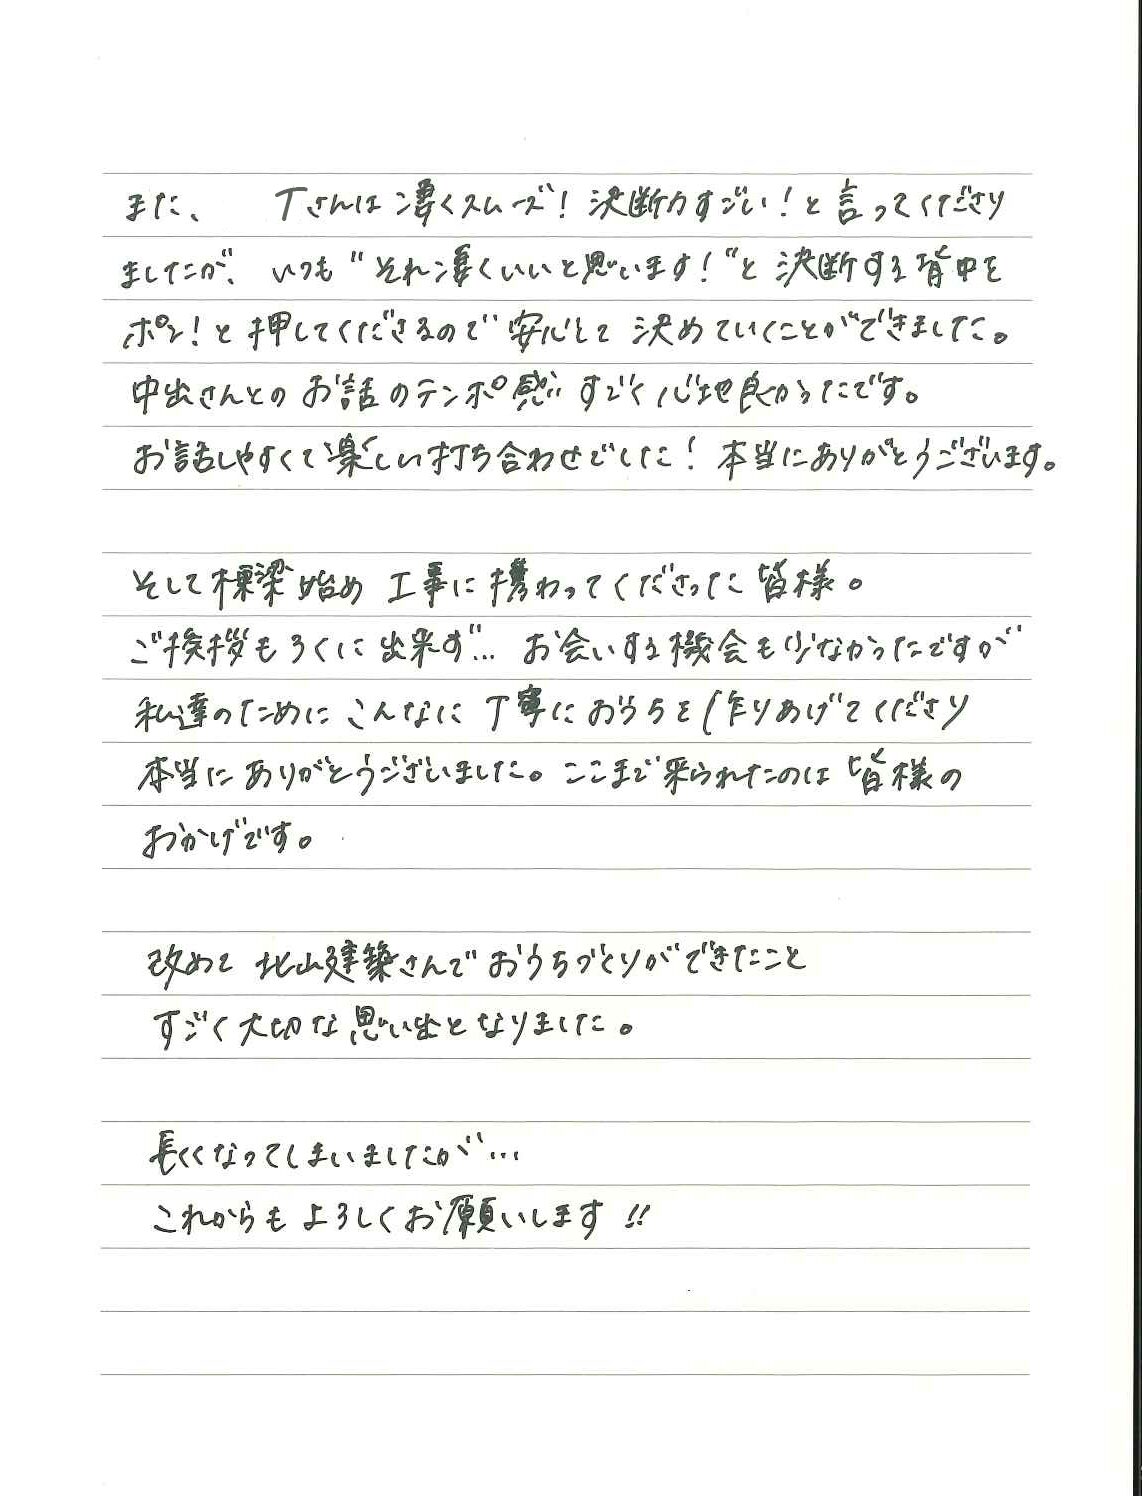 また、　Tさんは凄くスムーズ！決断力すごい！と言ってくださり
ましたが、いつも"それ凄くいいと思います！"と決断する背中を
ポン！と押してくださるので安心して決めていくことができました。
中出さんとのお話のテンポ感すごく心地良かったです。
お話しやすくて楽しい打ち合わせでした！本当にありがとうございます。
そして棟梁始め工事に携わってくださった皆様。
ご挨拶もろくに出来ず…お会いする機会も少なかったですが
私達のためにこんなに丁寧におうちを作りあげてくださり
本当にありがとうございました。ここまで来られたのは皆様の
おかげです。
改めて北山建築さんでおうちづくりができたこと
すごく大切な思い出となりました。
長くなってしまいましたが…
これからもよろしくお願いします!!